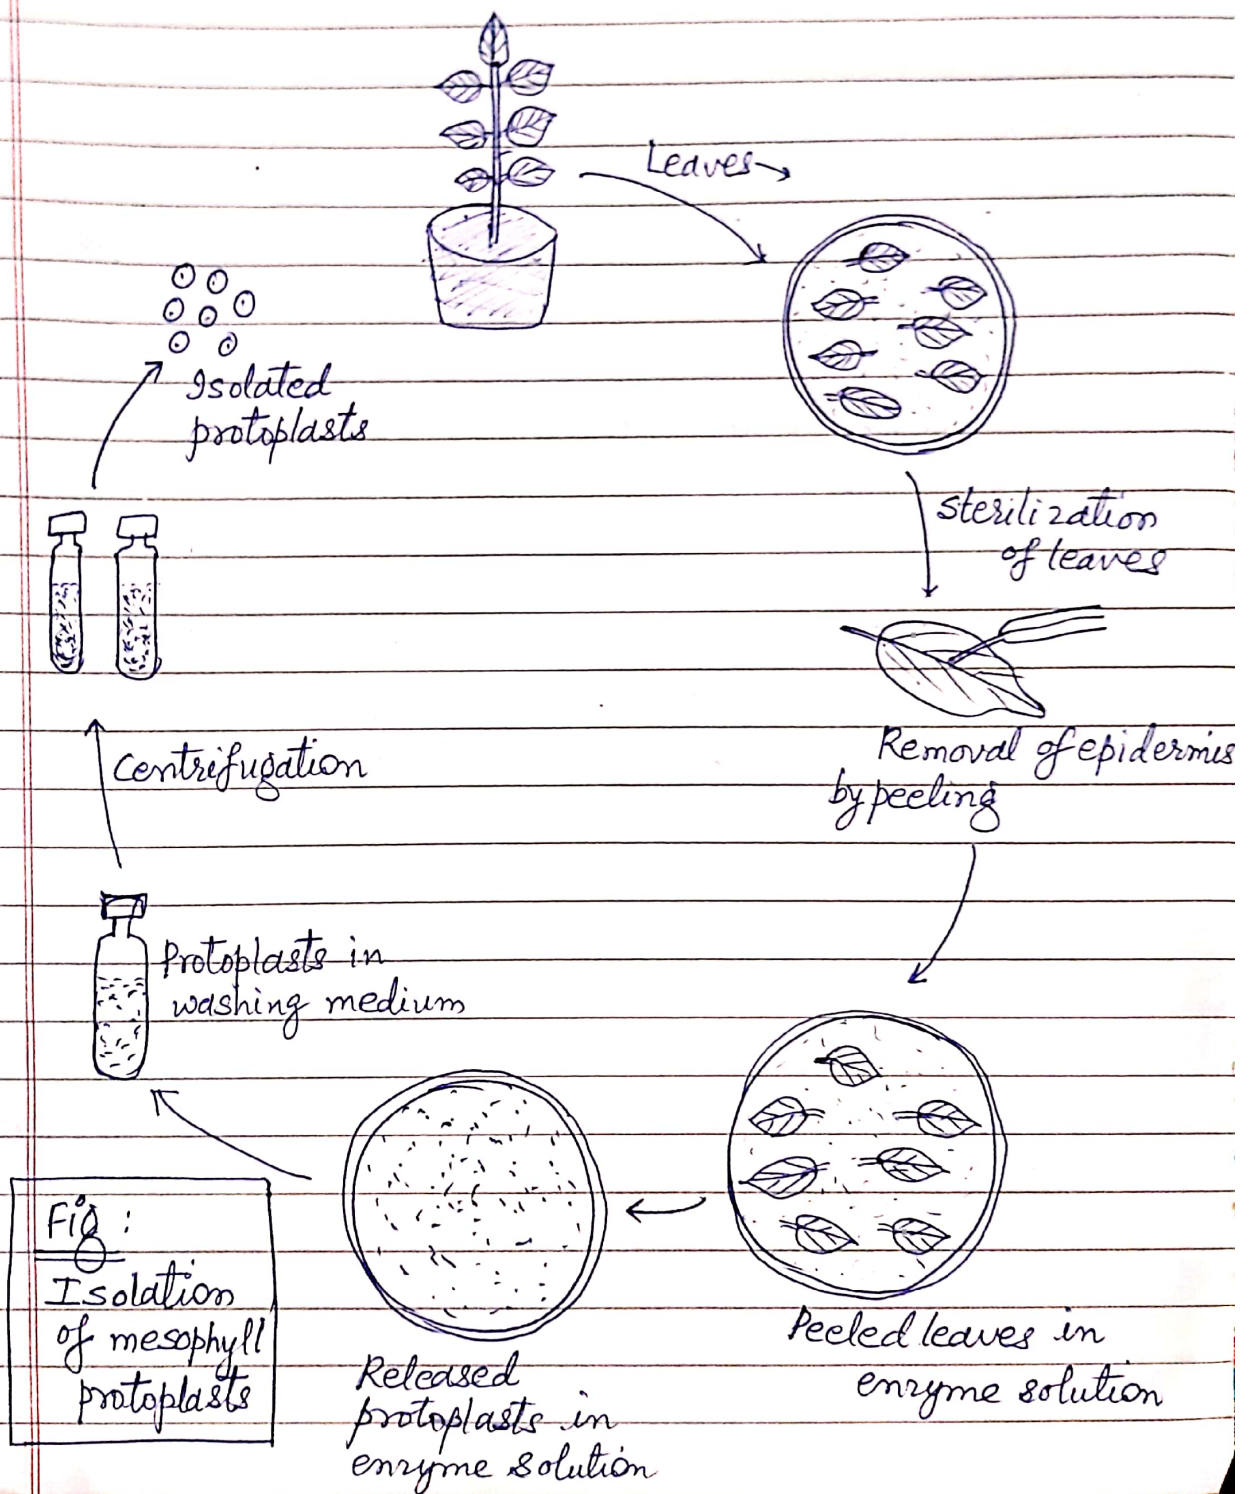 Leaves
Sterilization
of leaves
Removal of epidermis
by peeling
Peeled leaves in
enzyme solution
Released
protoplasts in
enzyme solution
Protoplasts in
washing medium
Centrifugation
Isolated
protoplasts
Fig :
Isolation
of mesophyll
protoplasts